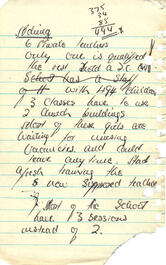 375
24
85
484
6 Private teachers
Only one is qualified
School has a staff
of 11 with 484 children
3 classes have to use
2 Church buildings
most of these girls are
waiting for nursing
vacancies and could
leave any time. Start
afresh training the
5 new supposed teachers
Most of the School
have 3 sessions
instead of 2.